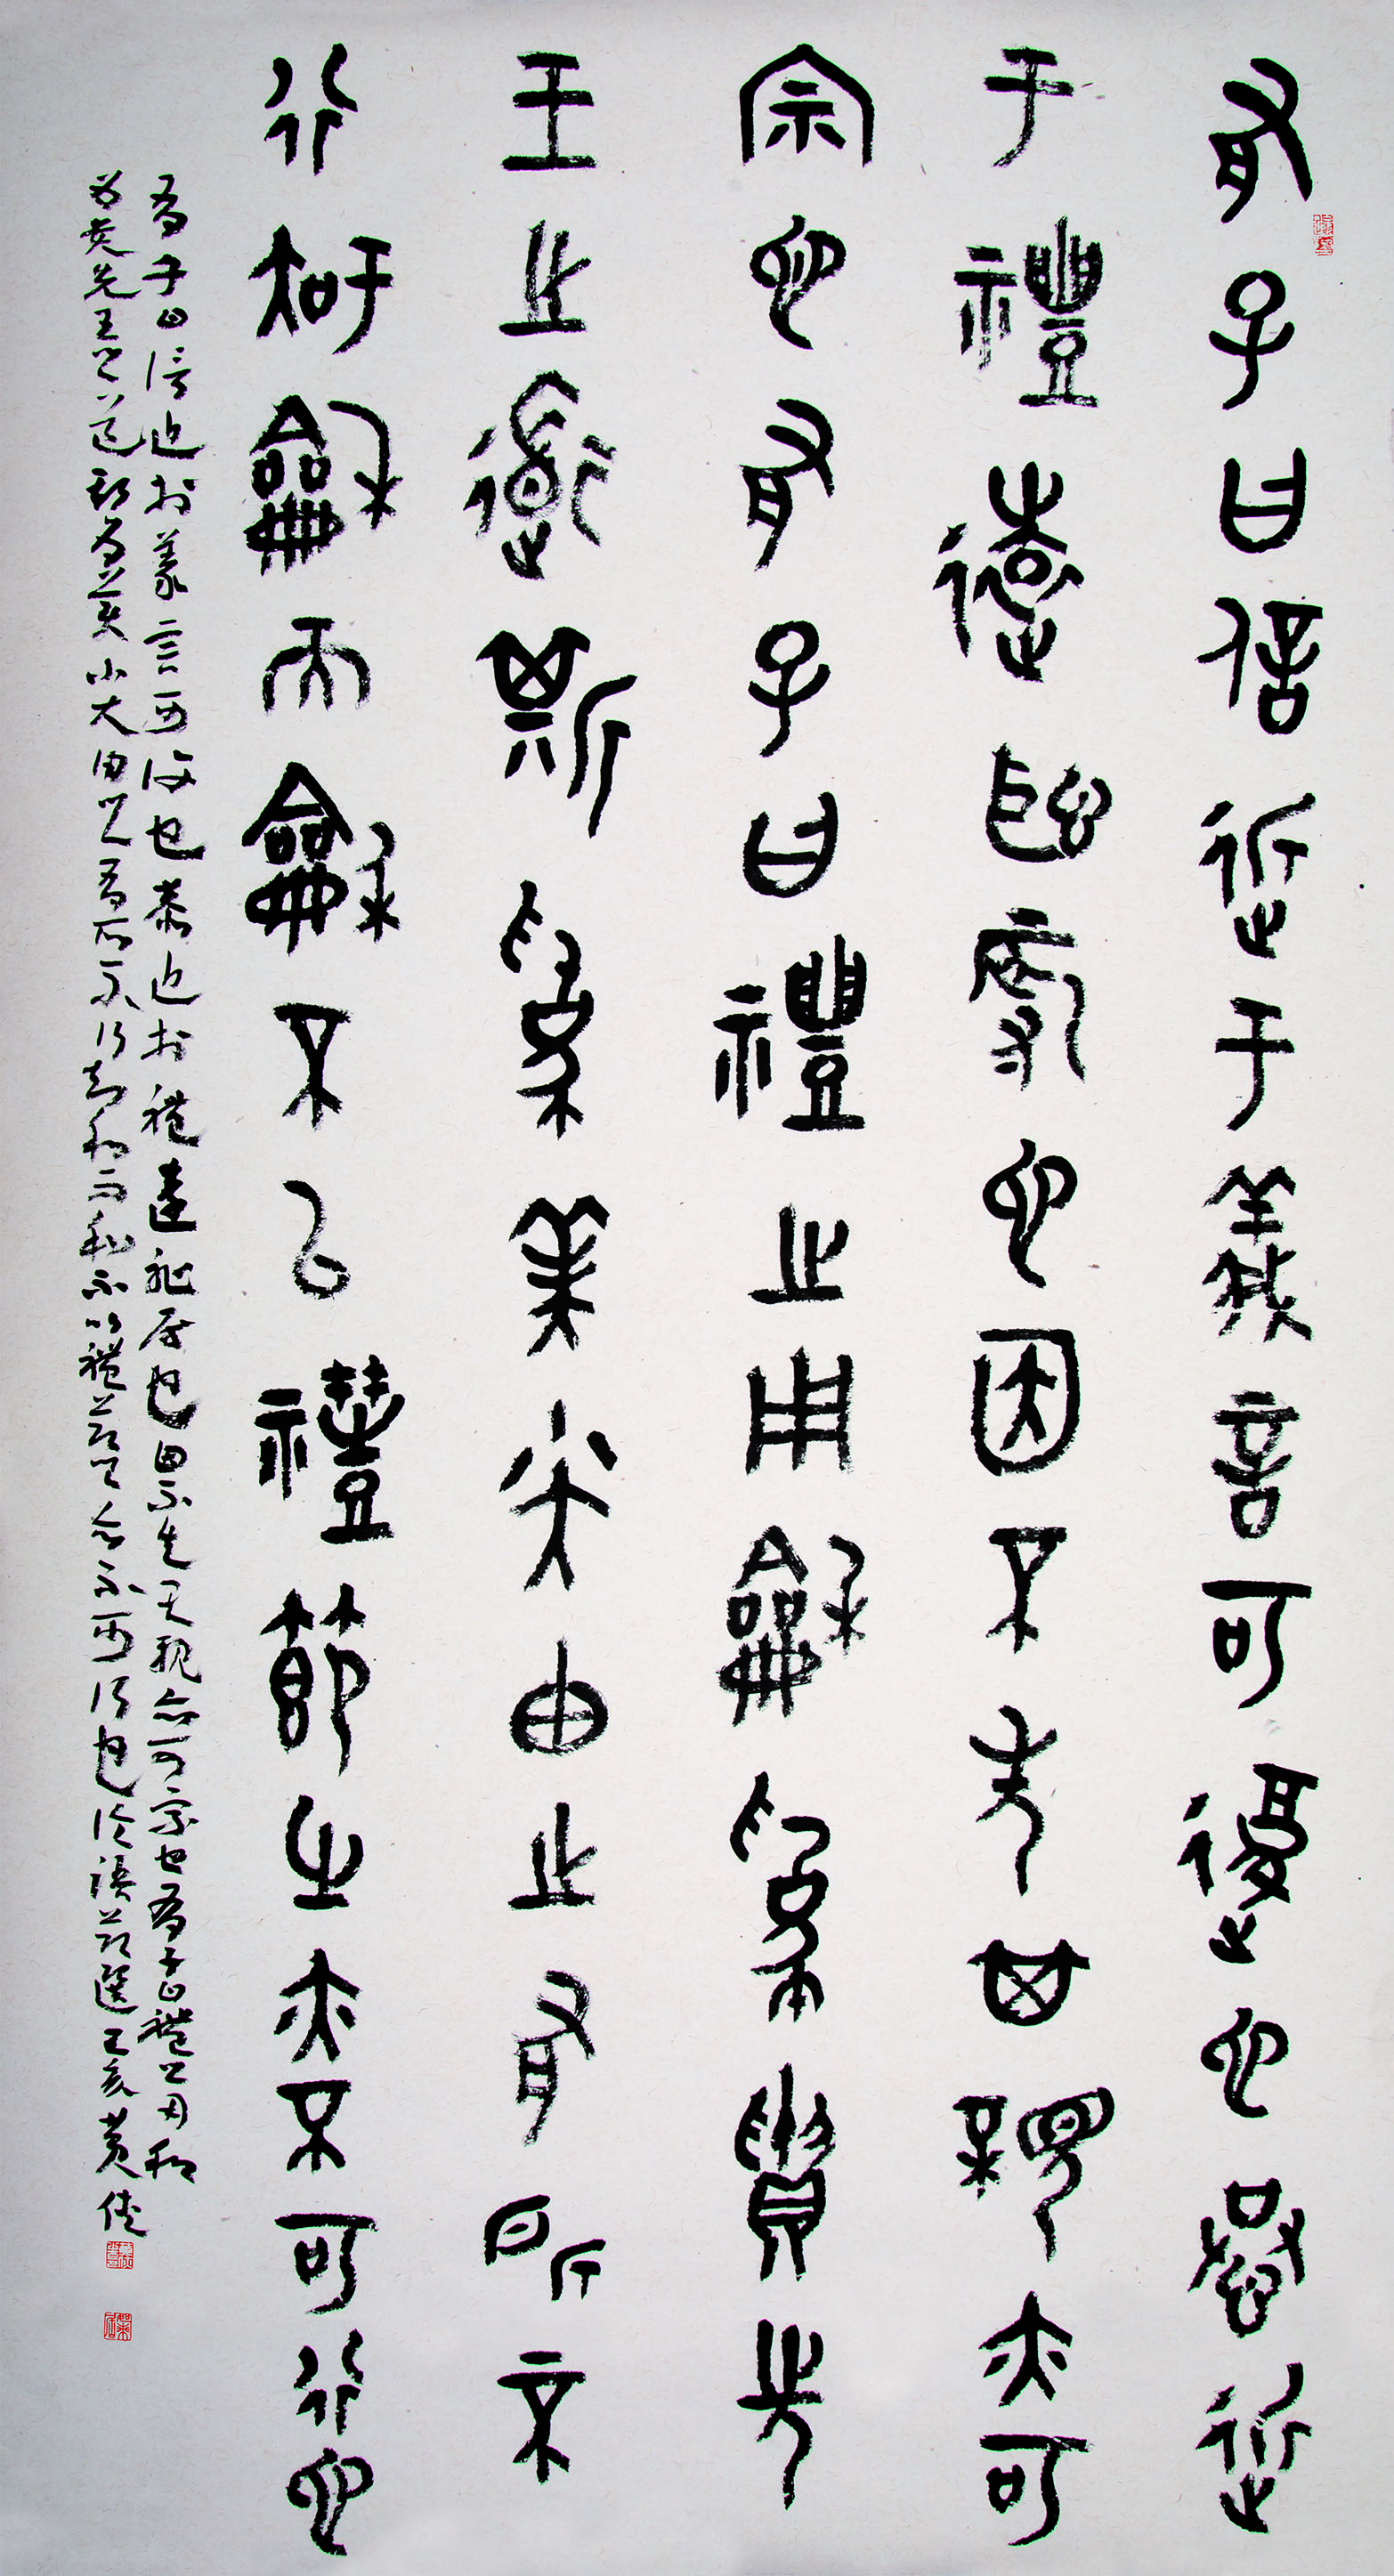 有子曰信近于義言可復也恭近
于禮遠恥辱也因不失其親亦可
宗也有子曰禮之用龢為貴先
王之道斯為美小大由之有所不
行知龢而龢不以禮節之亦不可行也
有子曰信近於義言可復也恭近於禮遠恥辱也因不失其親亦可宗也有子曰禮之用和
為貴先王之道斯為美小大由之有所不行知和而和不以禮節之亦不可行也論語節選己亥黃